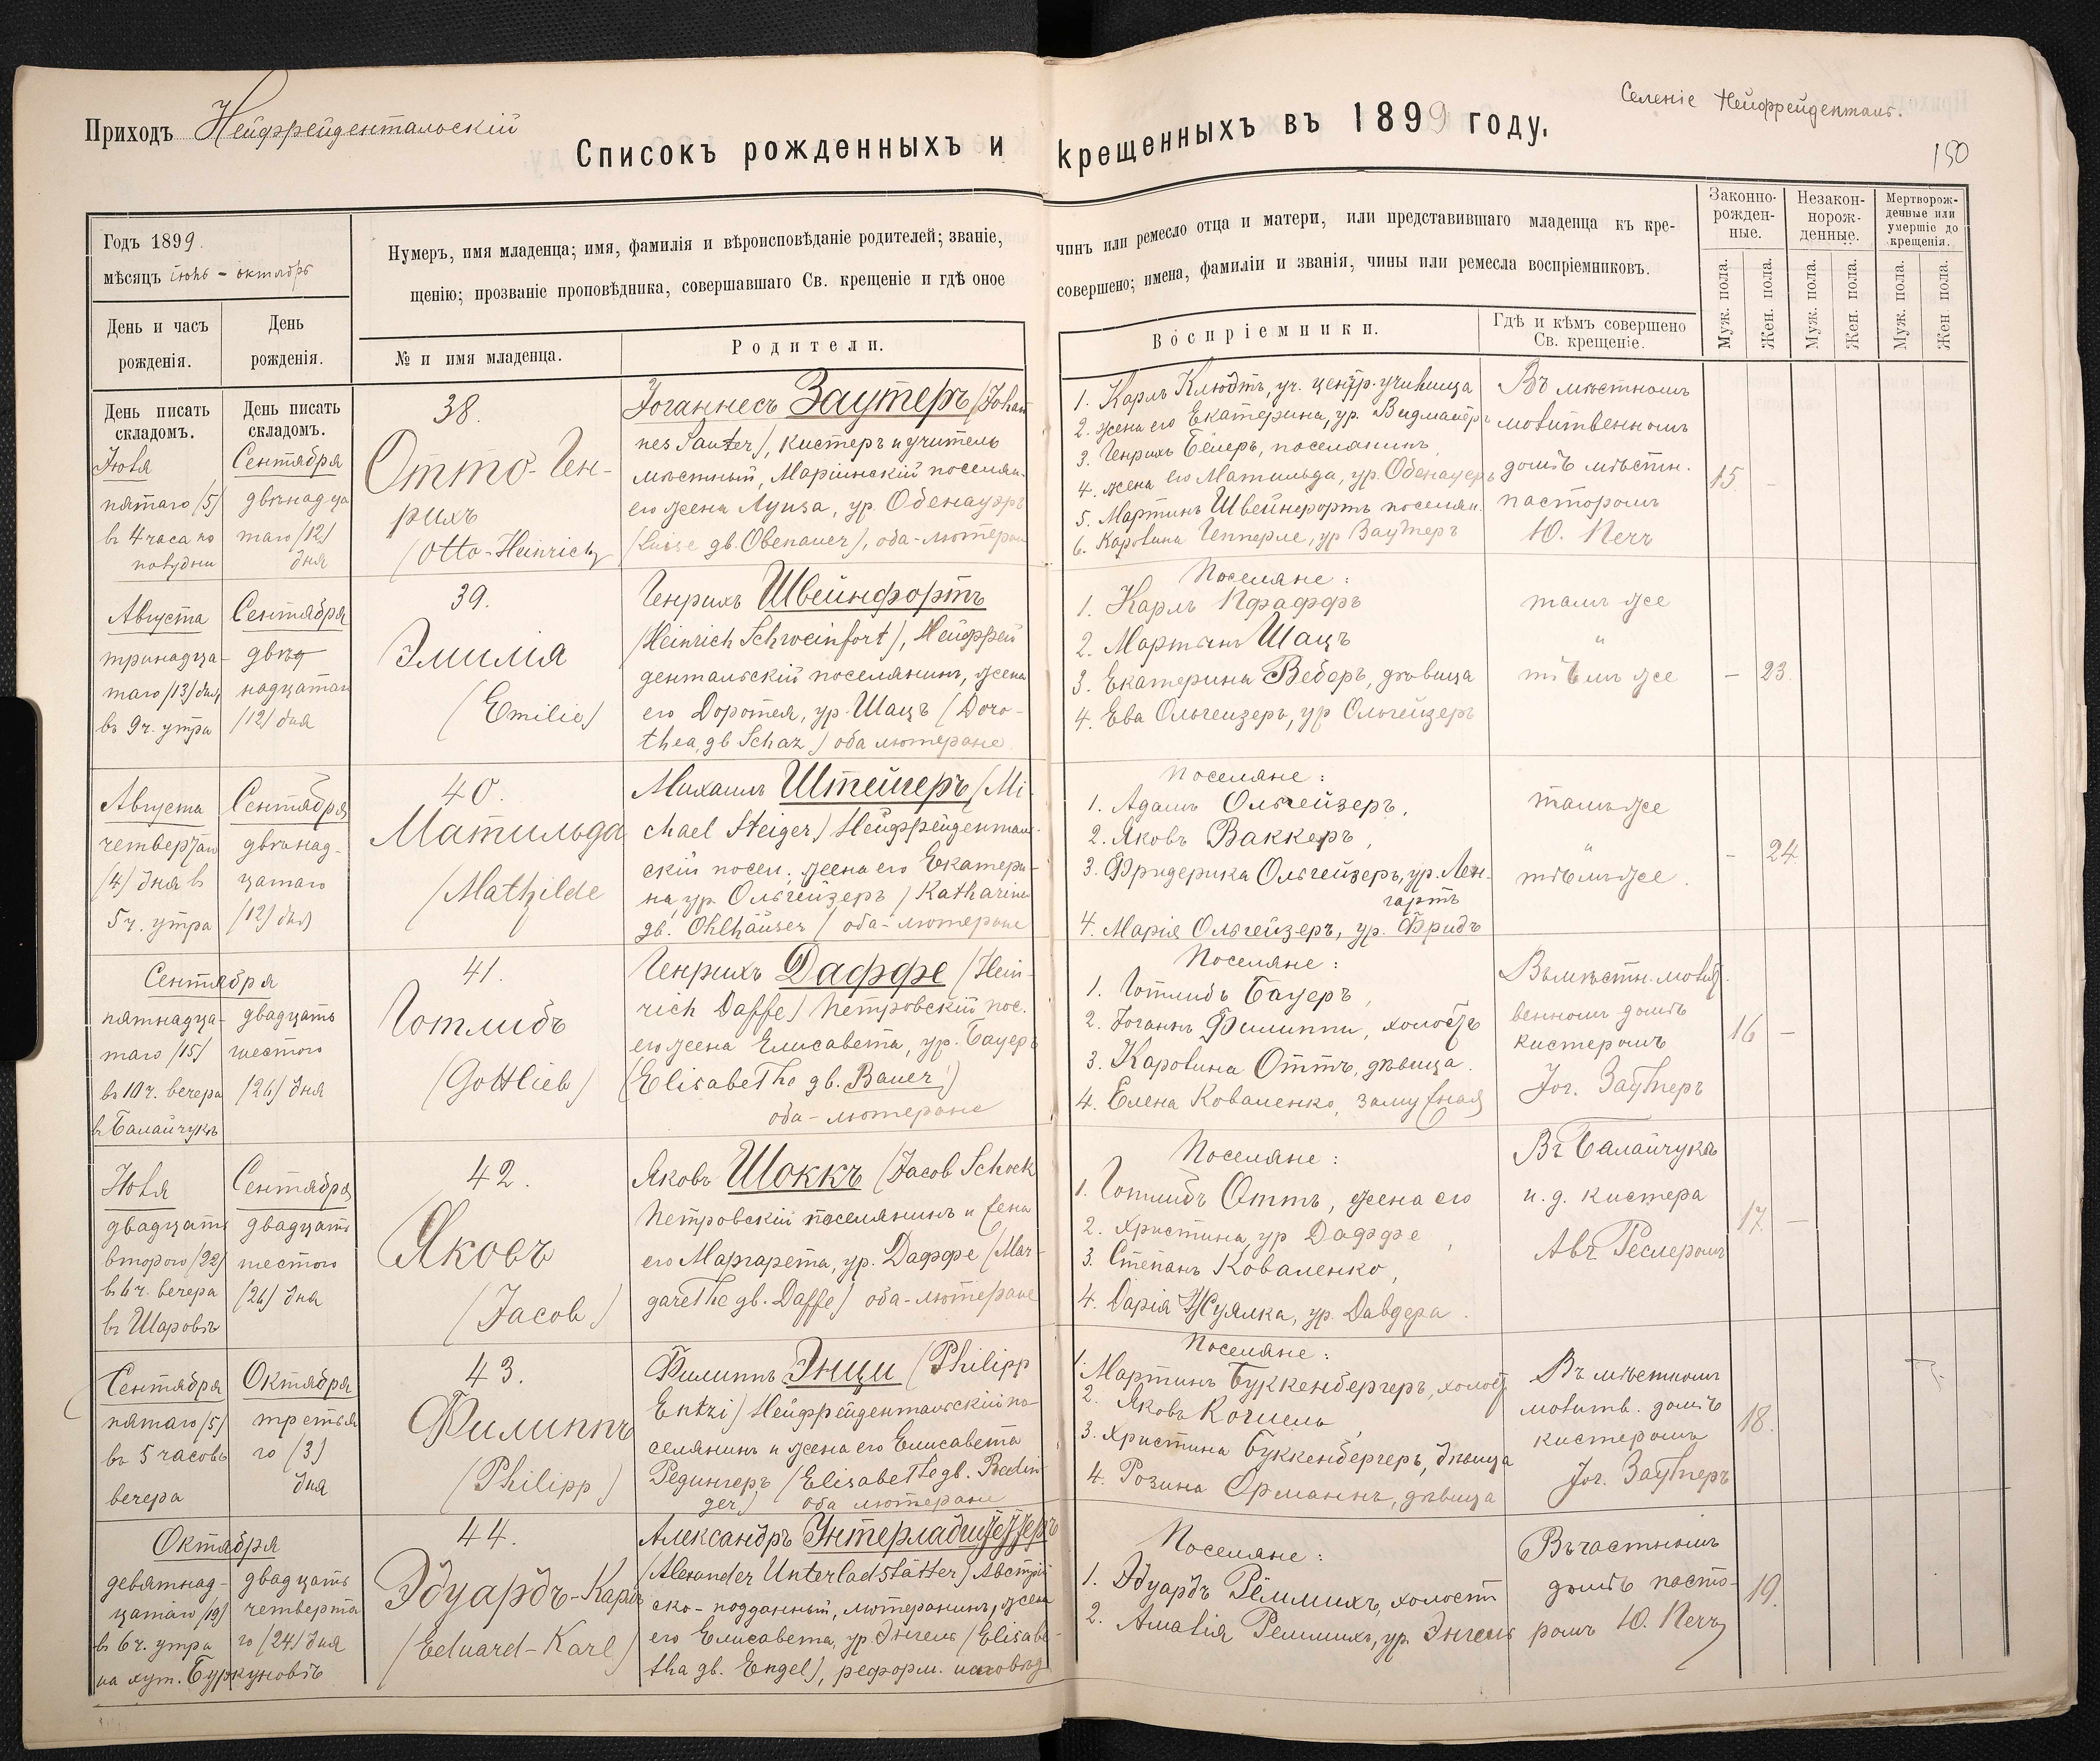 Приходъ Нейфрейдентальскій
Селеніе Нейфрейденталь.
Списокъ рожденныхъ и крещенныхъ въ 1899 году.
150
Годъ 1899.
мѣсяцъ іюнь - октябрь
Нумеръ, имя младенца; имя, фамилія и вѣроисповѣданіе родителей; званіе, чинъ или ремесло отца и матери, или представившаго младенца къ кре-
щенію; прозваніе проповѣдника, совершавшаго Св. крещеніе и гдѣ оное совершено; имена, фамиліи и званія, чины или ремесла воспріемниковъ.
Законно-
рожден-
ные.
Незакон-
норож-
денные.
Мертворож-
денные или
умершіе до
крещенія.
Муж. пола.
Жен. пола.
Муж. пола.
Жен. пола.
Муж. пола.
Жен. пола.
День и часъ
рожденія.
День
рожденія.
№ и имя младенца.
Родители.
Воспріемники.
Гдѣ и кѣмъ совершено
Св. крещеніе.
День писать
складомъ.
Іюля
пятаго /5/
въ 4 часа по
полудни
День писать
складомъ.
Сентября
двѣнадца
таго /12/
дня
38.
Отто-Ген-
рихъ
(Otto-Heinrich)
Іоганнесъ Заутеръ (Johan
nes Sauter), кистеръ и учитель
мѣстный, Маріинскій поселян.
его жена Луиза, ур. Обенауэръ
(Luise gb. Obenauer), оба-лютеран
1. Карлъ Клюдтъ, уч. центр. училища
2. жена его Екатерина, ур. Видмайеръ
3. Генрихъ Бейеръ, поселянинъ
4. жена его Матильда, ур. Обенауеръ
5. Мартинъ Швейнфортъ поселян.
6. Каролина Гепперле, ур. Заутеръ
Въ мѣстномъ
молитвенномъ
домѣ мѣстн.
пасторомъ
15. -
Августа
тринадца-
таго /13/ дня
въ 9 ч. утра
Сентября
двѣд
надцатаго
/12/ дня
39.
Эмилія
(Emilie)
Генрихъ Швейнфортъ
(Heinrich Schweinfort), Нейфрей
дентальскій поселянинъ, жена
его Доротея, ур. Шацъ (Doro-
thea, gb Schaz) оба лютеране.
Поселяне:
1. Карлъ Пфаффъ
2. Мартинъ Шацъ
3. Екатерина Веберъ, дѣвица
4. Ева Ольгейзеръ, ур Ольгейзеръ
тамъ же
"
тѣмъ же
- 23.
Августа
четвертаго
/4/ дня въ
5 ч. утра
Сентября
двѣнад-
цатаго
/12/ дня
40.
Матильда
(Mathilde
Михаилъ Штейгеръ (Mi-
chael Steiger) Нейфрейденталь-
скій посел., жена его Екатери-
на, ур. Ольгейзеръ (Katharina
gb. Ohlhäuser) оба-лютеране
Поселяне:
1. Адамъ Ольгейзеръ,
2. Яковъ Ваккеръ,
3. Фридерика Ольгейзеръ, ур. Лен-
гартъ
4. Марія Ольгейзеръ, ур. Фридъ
тамъ же
"
тѣмъ же.
- 24.
Сентября
пятнадца-
таго /15/
въ 10 ч. вечера
въ Балайчукѣ
двадцать
шестого
/26/ дня
41.
Готлибъ
(Gottlieb)
Генрихъ Даффе (Hein-
rich Daffe) Петровскій пос.
его жена Елисавета, ур. Бауеръ
(Elisabethe gb. Bauer)
оба-лютеране
Поселяне:
1. Готлибъ Бауеръ,
2. Іоганнъ Филиппи, холостъ
3. Каролина Оттъ, дѣвица.
4. Елена Коваленко, замужная
Въ мѣстн. молит.
венномъ домѣ
кистеромъ
Іог. Заутеръ
16 -
Іюля
двадцать
второго /22/
въ 6 ч. вечера
въ Шаровѣ
Сентября
двадцать
шестого
/26/ дня
42.
Яковъ
(Jacob)
Яковъ Шоккъ (Jacob Schock
Петровскій поселянинъ и жена
его Маргарета, ур. Даффе (Mar-
garethe gb. Daffe) оба-лютеране
Поселяне:
1. Готлибъ Оттъ, жена его
2. Христина, ур Даффе,
3. Степанъ Коваленко,
4. Дарія Жуялка, ур. Давдера.
Въ Балайчукѣ
и. д. кистера
Авг Реслеромъ
17. -
Сентября
пятаго /5/
въ 5 часовъ
вечера
Октября
третья
го (3)
дня
43.
Филиппъ
(Philipp)
Филиппъ Энци (Philipp
Entzi) Нейфрейдентальскій по-
селянинъ и жена его Елисавета
Редингеръ (Elisabethe gb. Redin
ger) оба лютеране
Поселяне:
1. Мартинъ Буккенбергеръ, холост
2. Яковъ Когжель,
3. Христина Буккенбергеръ, дѣвица
4. Розина Орманнъ, дѣвица
Въ мѣстномъ
молитв. домѣ
кистеромъ
Іог. Заутеръ
18.
Октября
девятнад-
цатаго /19/
въ 6 ч. утра
на хут. Буркуновѣ
двадцать
четверта
го /24/ дня
44.
Эдуардъ-Карлъ
(Eduard-Karl)
Александръ Унтерладштеттеръ
(Alexander Unterladstätter) Австрій
ско-подданный, лютеранинъ, жена
его Елисавета, ур. Энгель (Elisabe-
tha gb. Engel), реформ. исповѣд
Поселяне:
1. Эдуардъ Реммихъ, холостъ
2. Амалія Реммихъ, ур. Энгель
Въ частномъ
домѣ пасто-
ромъ
19.